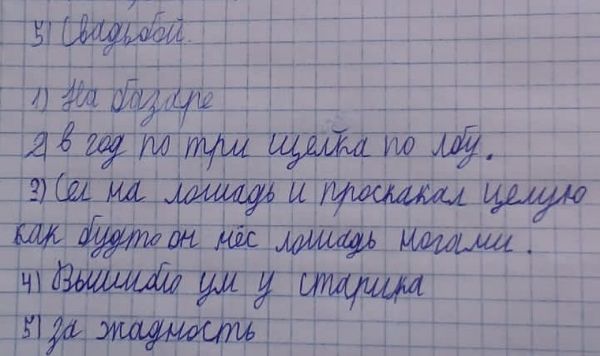 5) Свадьбой.
1) На базаре
2) в год по три щелка по лбу.
3) Сел на лошадь и проскакал целую
как будто он нёс лошадь ногами.
4) Вышибло ум у старика
5) за жадность